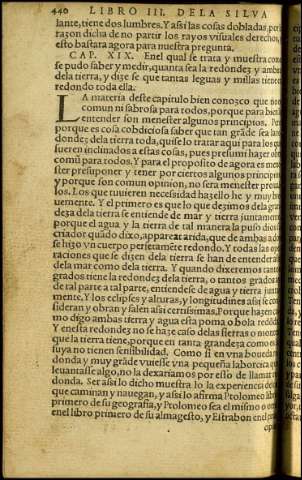 440 LIBRO III. DELA SILVA
lante, tiene dos lumbres. Y assi las cosas dobladas, por
razon dicha de no partir los rayos visuales derechos,
esto bastara agora para nuestra pregunta.
CAP. XIX. Enel qual se trata y muestra como
se pudo saber y medir, quanta sea la redondez y ambi
dela tierra, y dize se que tantas leguas y millas tiene
redondo toda ella.
LA materia deste capitulo bien conozco que no
comun ni sabrosa para todos, porque para bien
entender son menester algunos principios. Pero
porque es cosa cobdiciosa saber que tan grāde sea la
dondez dela tierra toda, quise lo tratar aqui para los que
fueren inclinados a estas cosas, pues presumo hazer
comū para todos. Y para el proposito de agora es mene
ster presuponer y tener por ciertos algunos principi
y porque son comun opinion, no sera menester prouar
los. Los que tuuieren necessidad hazello he y muy bre
uemente. Y el primero es que lo que dezimos dela gran
deza dela tierra se entiende de mar y tierra juntamente
porque el agua y la tierra de tal manera la puso dios
criador quādo dixo, apparecat arida, que de ambas
se hizo vn cuerpo perfetamēte redondo. Y todas las
raciones que se dizen dela tierra se han de entender
dela mar como dela tierra. Y quando dixeremos tantos
grados tiene la redondez dela tierra, o tantos grados
de tal parte a tal parte, entiendese de agua y tierra junta
mente. Y los eclipses y alturas, y longitudines assi se con
sideran y obran y salen assi certissimas. Porque hazen co
mo digo ambas tierra y agua esta poma o bola redōda
Y enesta redondez no haze caso delas sierras o montes
que la tierra tiene, porque en tanta grandeza como
suya no tienen sensibilidad. Como si en vna boua
donda y muy grāde vuiesse vna pequeña laborcica que
leuantasse algo, no la dexariamos por esso de llamar re
donda. Ser assi lo dicho muestra lo la experiencia de
que caminan y nauegan, y assi lo afirma Ptolomeo libro
primero de su geografia, y Ptolomeo sea el mismo o
enel libro primero de su almagesto, y Estrabon en el pri